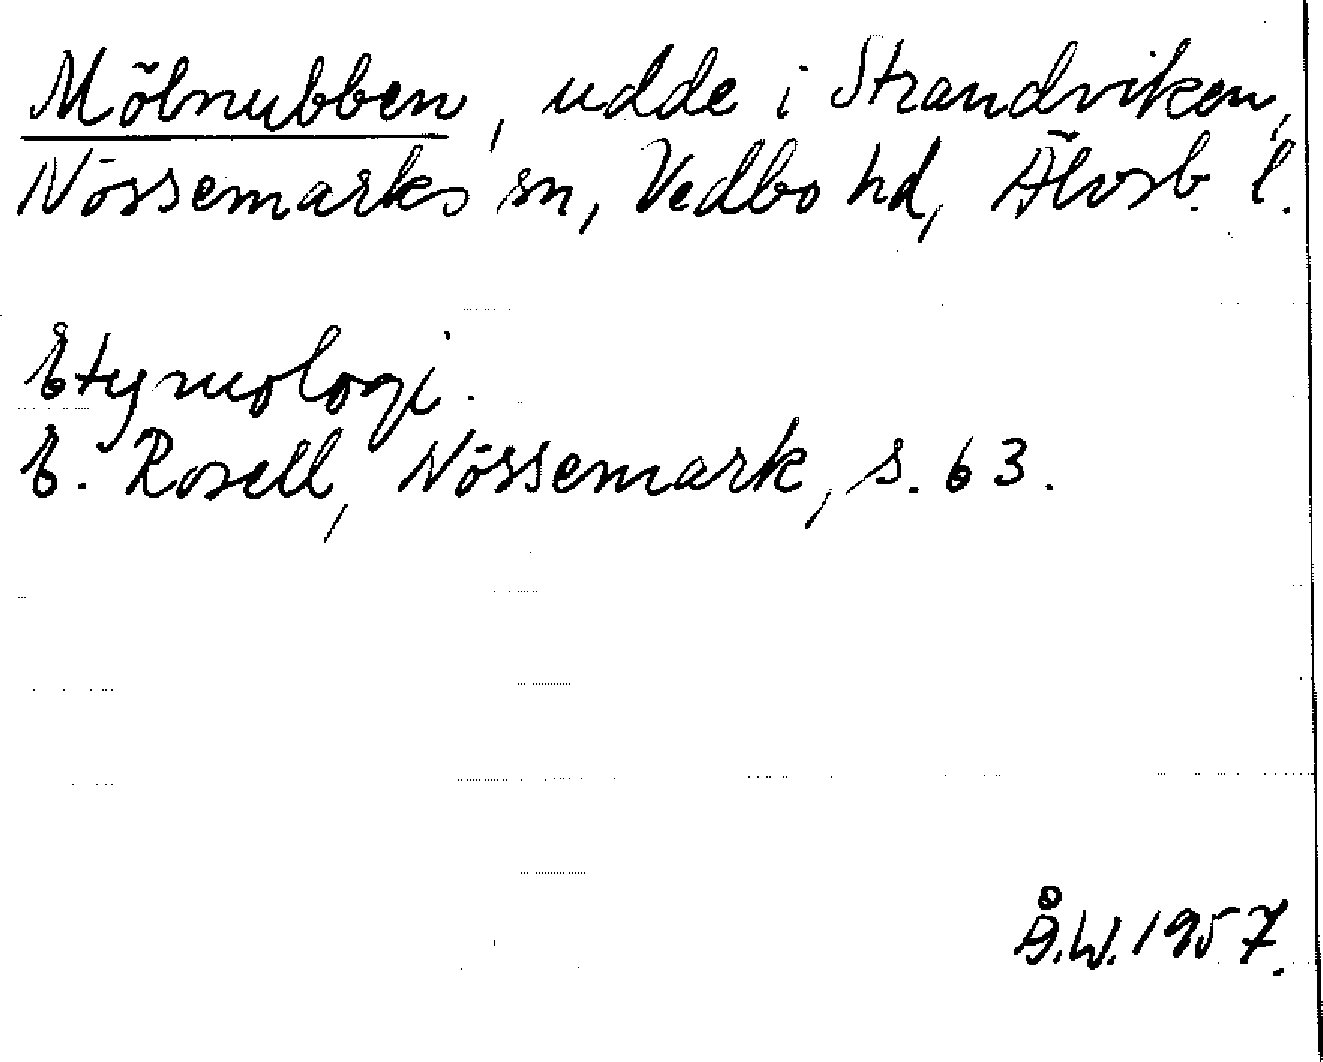 Mölnubben, udde i Strandviken,
Nössemarks sn, Vedbo hd, Älvsb. l.
Etymologi.
E. Rosell, Nössemark, s. 63.
Å.W. 1957.